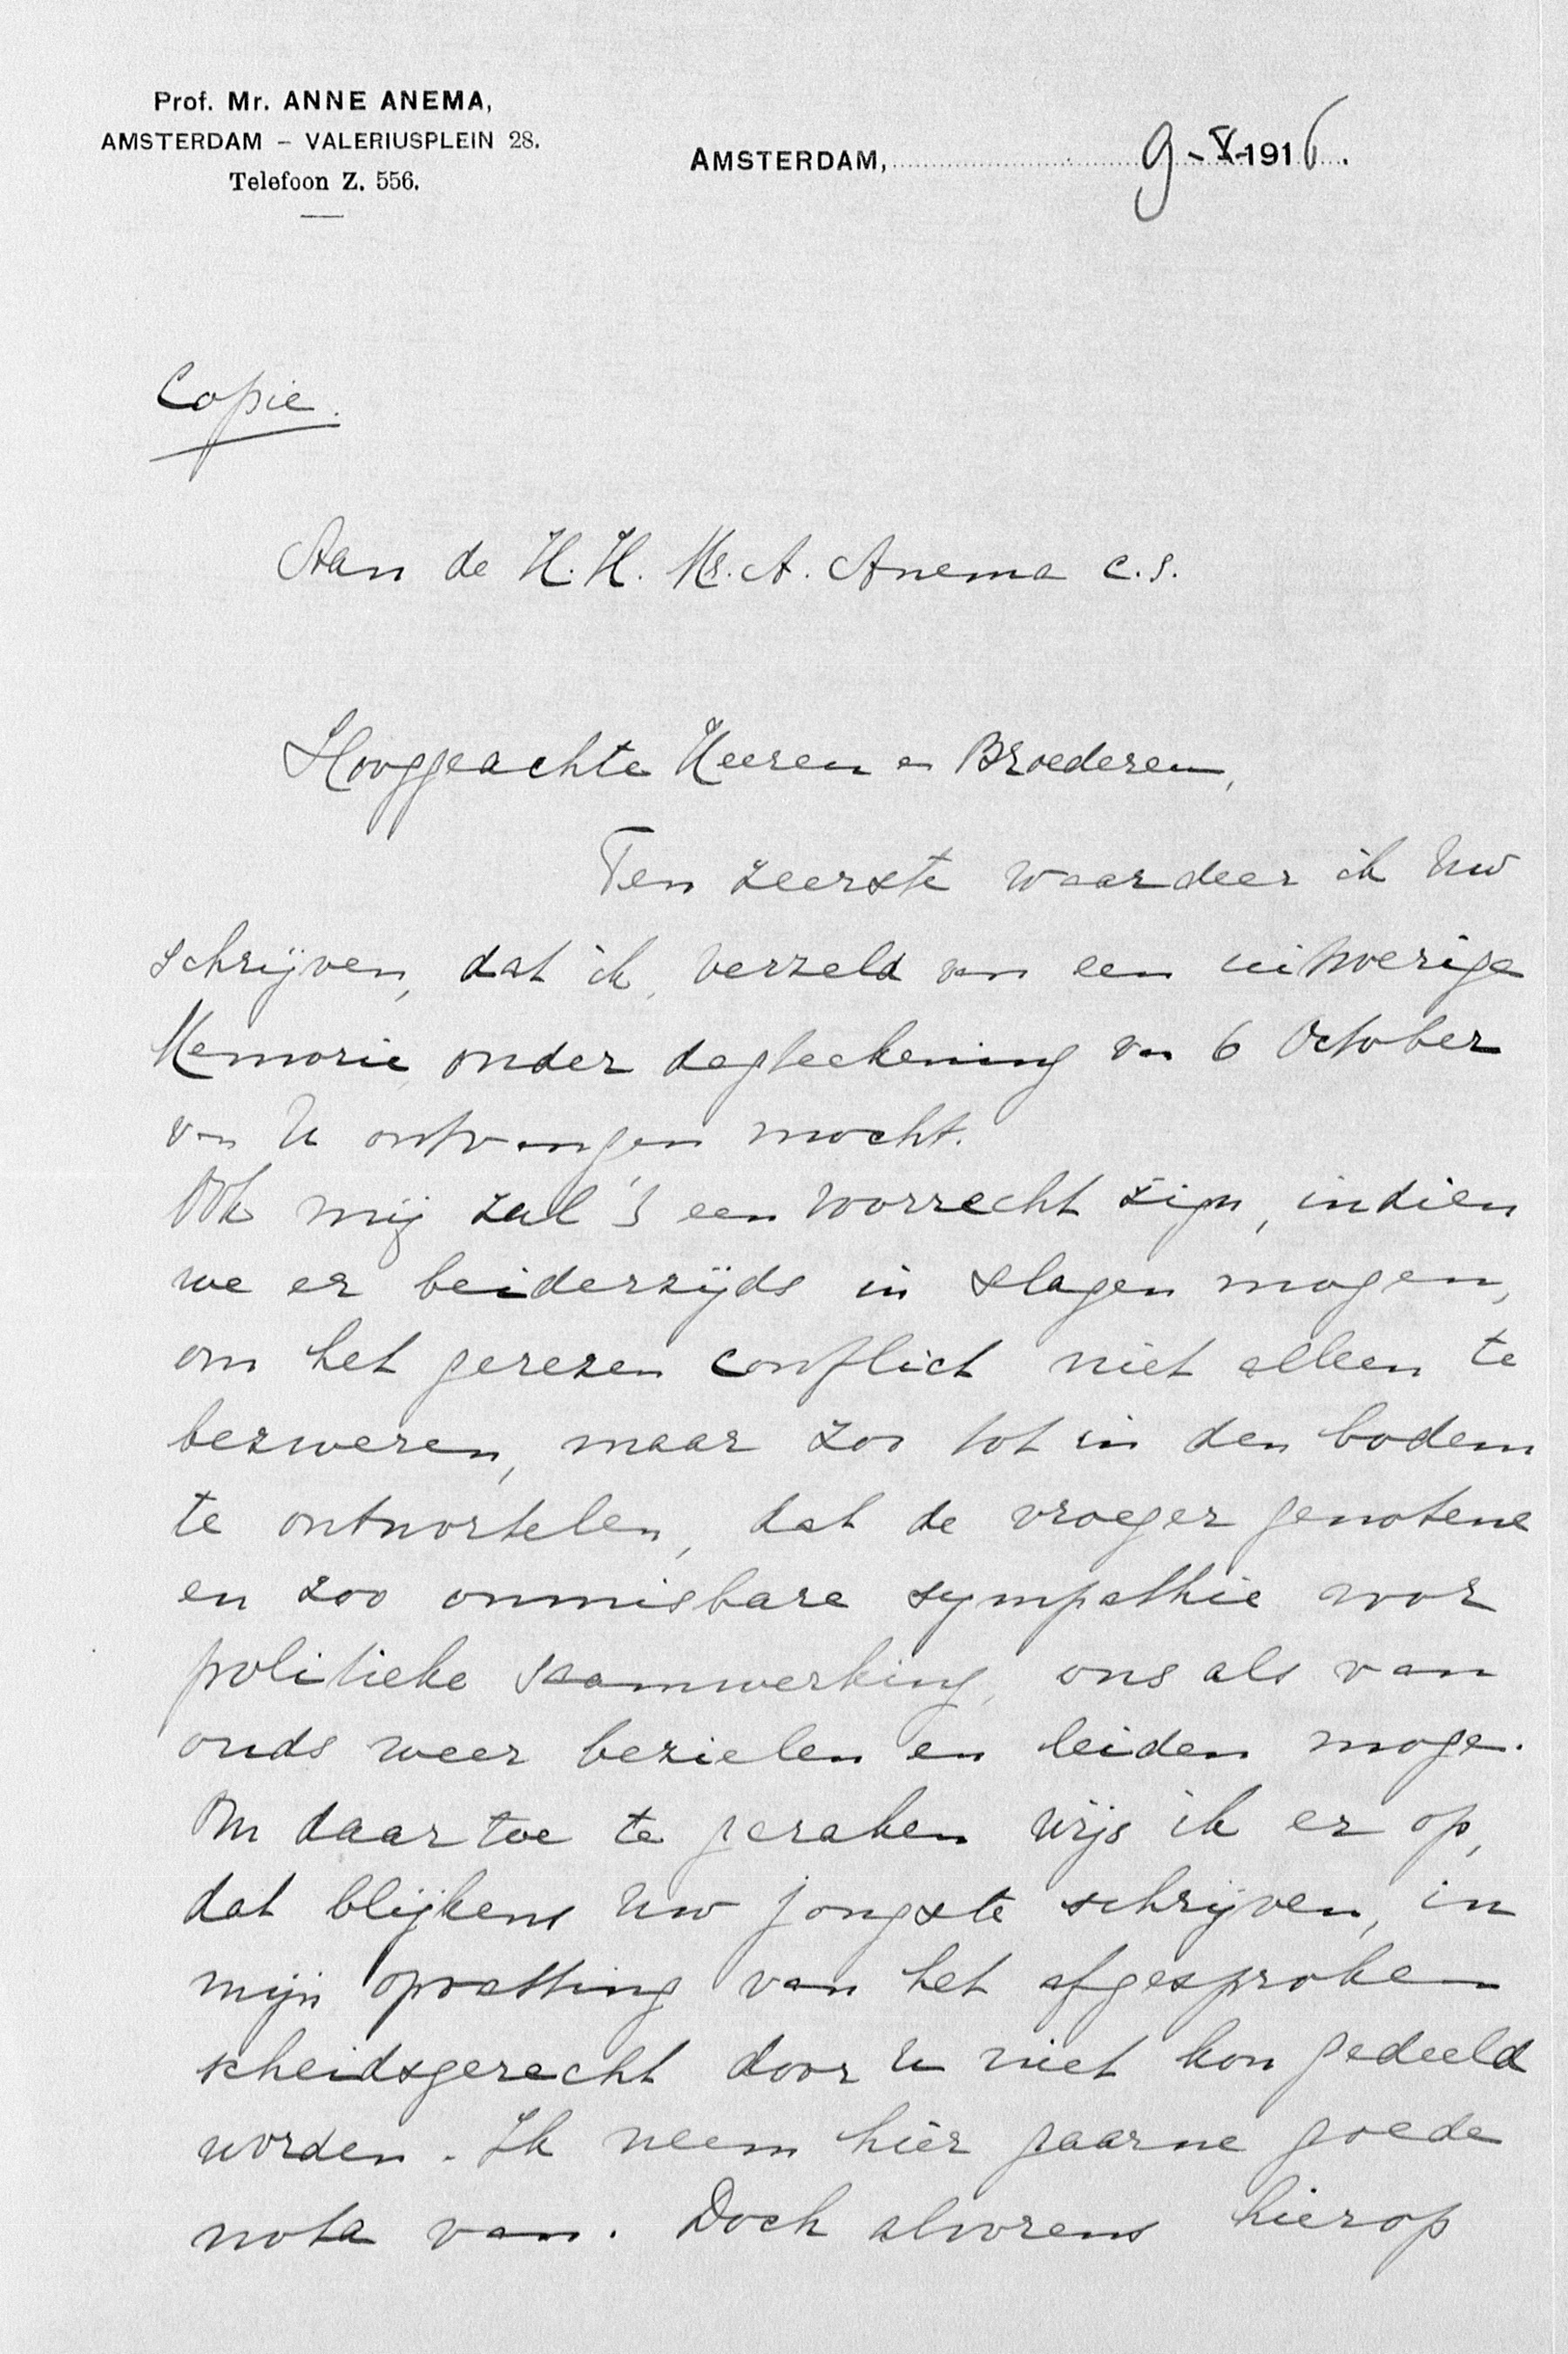 Prof. Mr. ANNE ANEMA,
AMSTERDAM – VALERIUSPLEIN 28.
Telefoon Z. 556.
AMSTERDAM, 9-X-1916.
Copie.
Aan de H.H. Mr. A. Anema c.s.
Hooggeachte Heeren en Broederen,
Ten zeerste waardeer ik Uw
schrijven, dat ik, verzeld van een uitvoerige
Memorie, onder dagteekening van 6 October
van U ontvangen mocht.
Ook mij zal 't een voorrecht zijn, indien
we er beiderzijds in slagen mogen,
om het gerezen conflict niet alleen te
bezweren, maar zoo tot in den bodem
te ontwortelen, dat de vroeger genotene
en zoo onmisbare sympathie voor
politieke saamwerking, ons als van
ouds weer bezielen en leiden moge.
Om daartoe te geraken wijs ik er op,
dat blijkens Uw jongste schrijven, in
mijn opvatting van het afgesproken
scheidsgerecht door U niet kon gedeeld
worden. Ik neem hier gaarne goede
nota van. Doch alvorens hierop